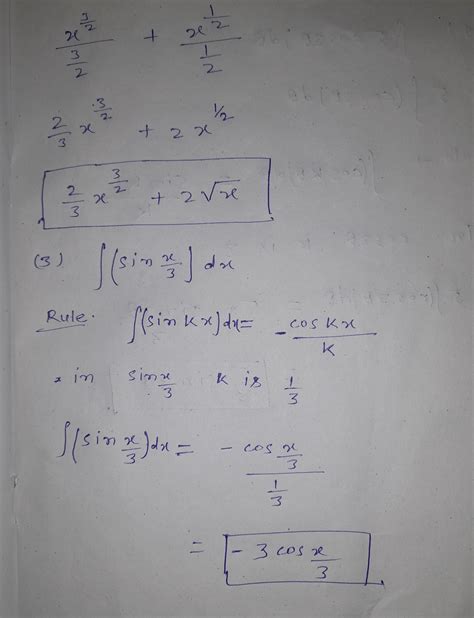 x^(3/2)/(3/2) + x^(1/2)/(1/2)
2/3 x^(3/2) + 2 x^(1/2)
2/3 x^(3/2) + 2√x
(3) ∫(sin x/3) dx
Rule. ∫(sin kx)dx = - cos kx / k
* in sin x/3 k is 1/3
∫(sin x/3)dx = - cos x/3 / (1/3)
= - 3 cos x/3